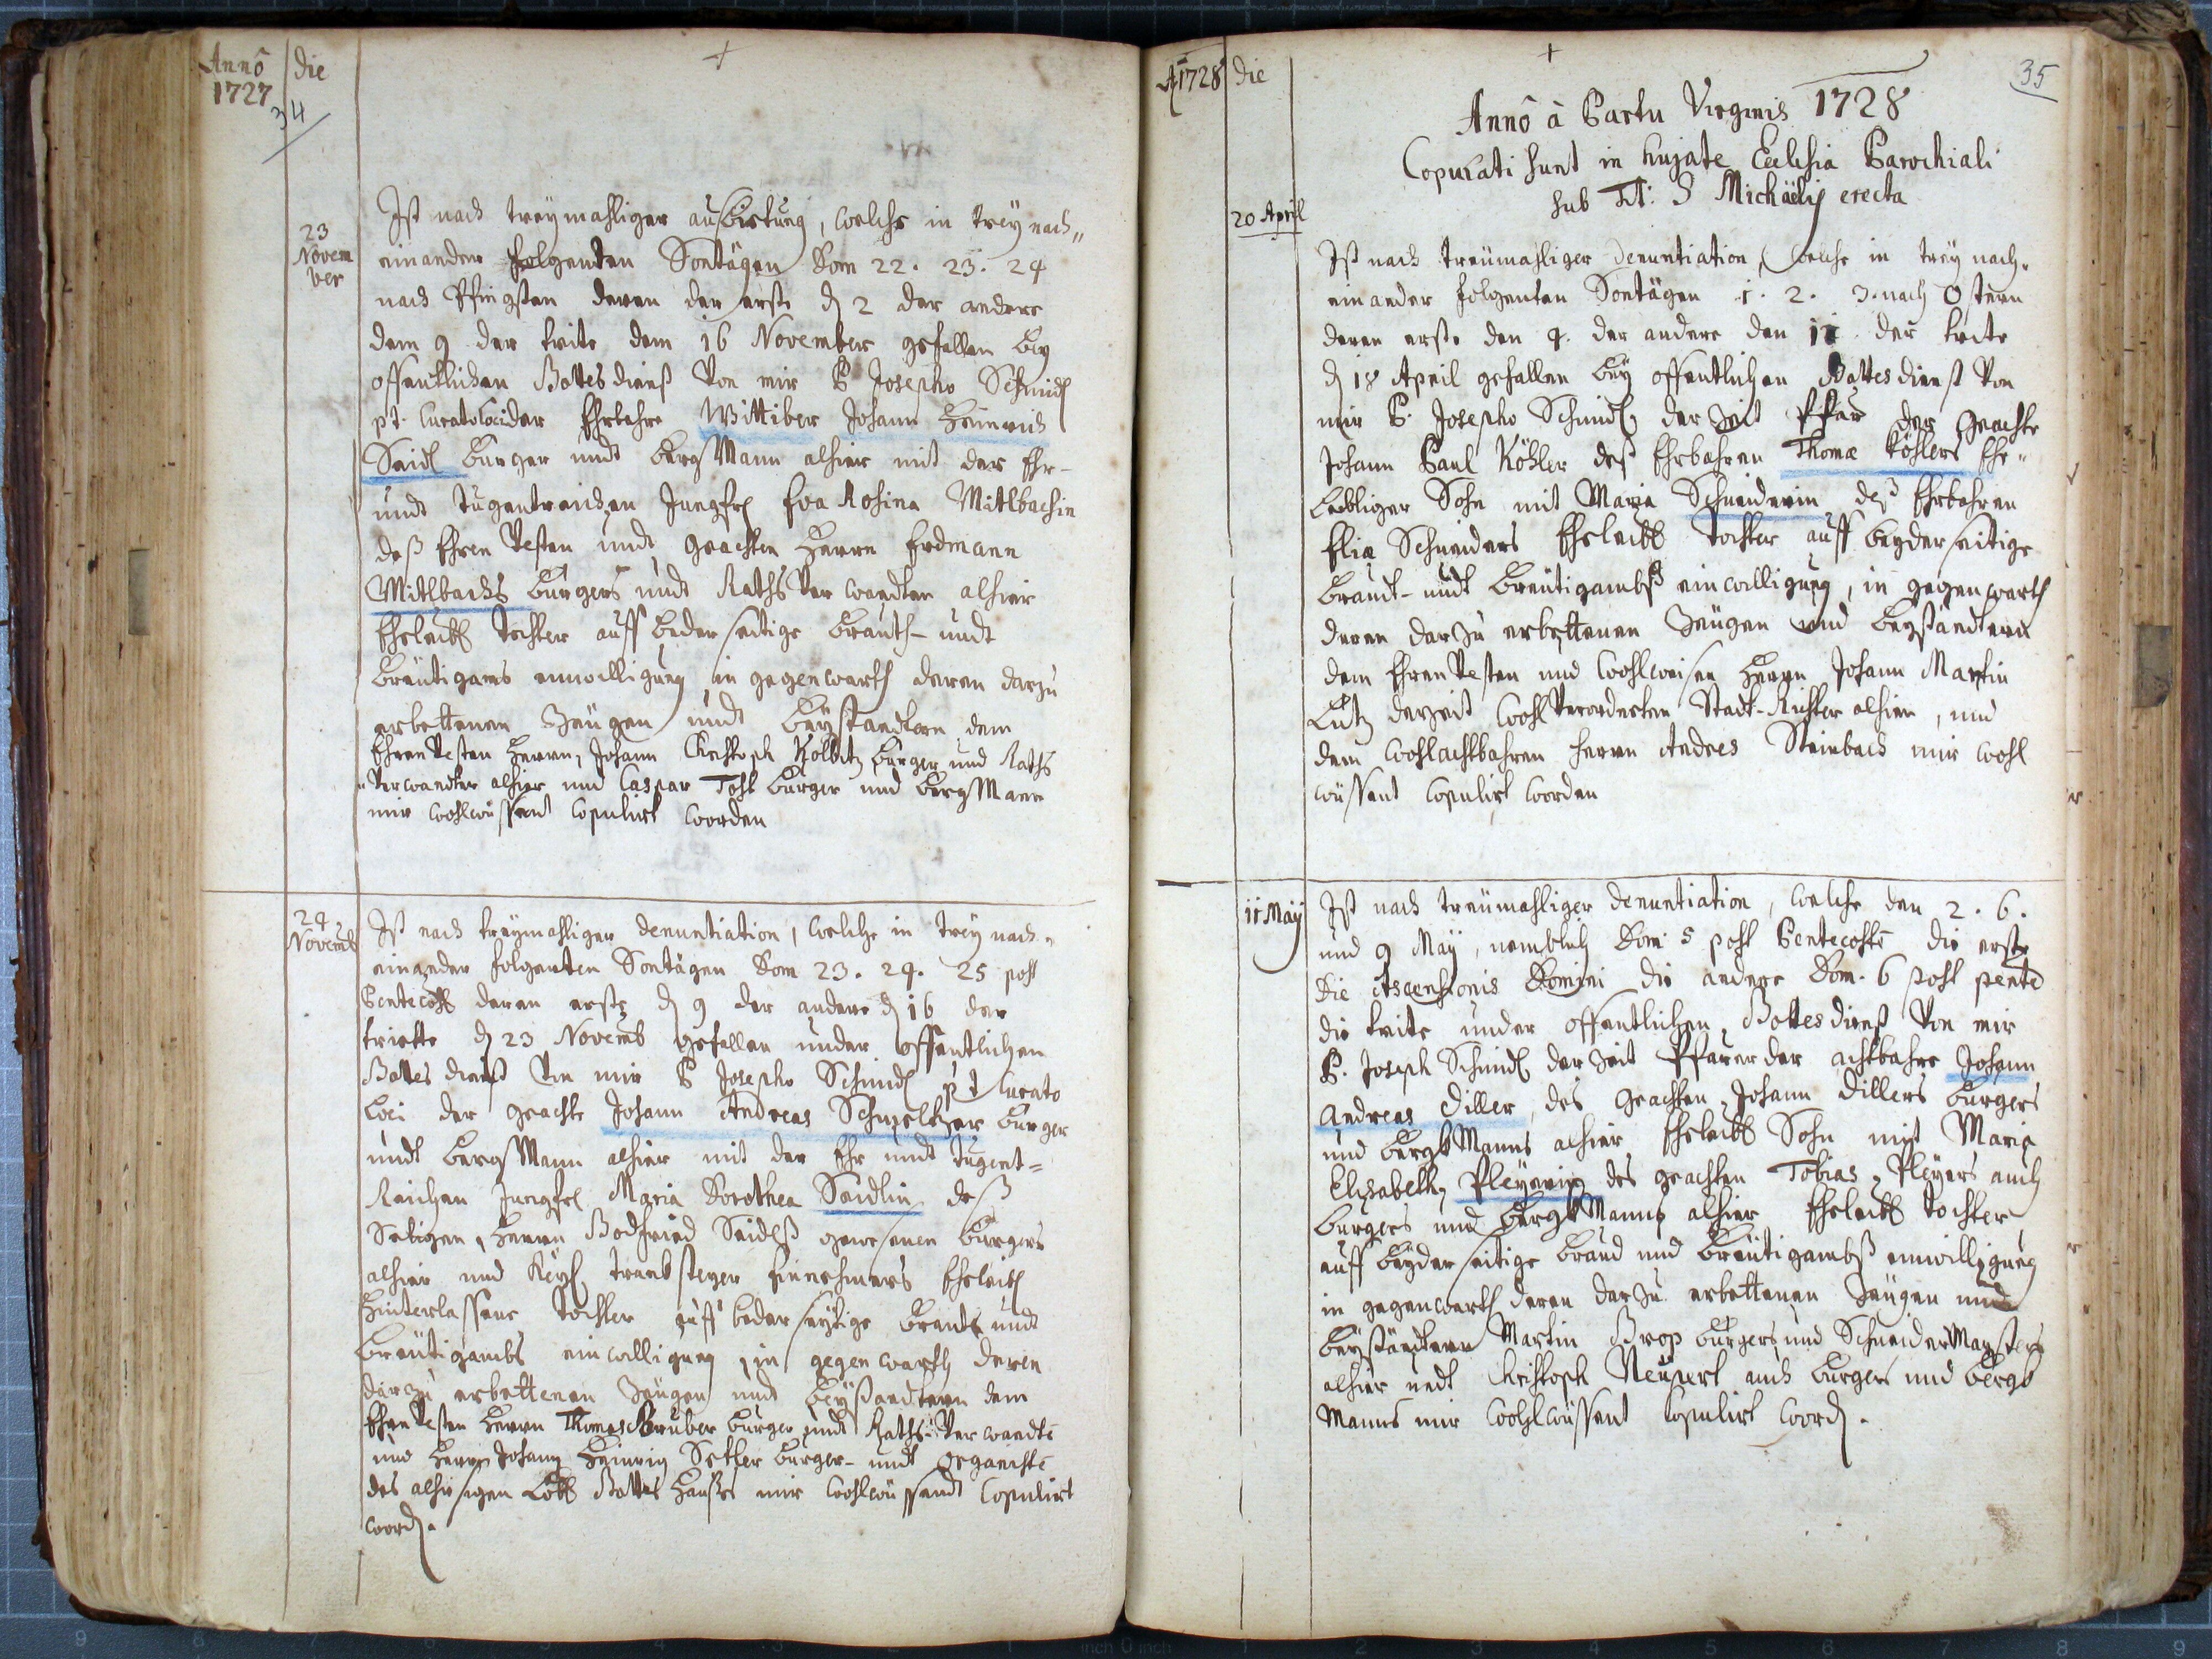 Annô die
1727
34
23
Novem
ber
Ist nach treymahliger außbietung, welche in trey nach„
einander folgenden Sontägen Dom 22. 23. 24
nach Pfingsten deren der erste d 2 der andere
dem 9 der trite dem 16 November gefallen bey
offentlichen Gottesdienst Von mir P Josepho Schmidl
p.t. Curato loci der Ehrbahre Wittiber Johann Heinrich
Seidl burger undt bergMann alhier mit der Ehr-
undt Tugentreichen Jungfr Eva Rosina Mitlbachin
deß Ehren Vesten undt geachten Herrn Erdmann
Mitlbachs burgers undt RathsVerwandten alhier
Eheleibl tochter auff bederseitige brauth- undt
breütigams einwilligung in gegenwarth deren darzu
erbettenen Zeügen undt beystandtern dem
EhrenVesten Herrn, Johann Christoph Kolbitz burger und Raths
„Verwandter alhier und Caspar burger und bergMann
mir wohlwüssend Copulirt worden
24
Novemb
Ist nach treymahliger denuntiation, welche in trey nach„
einander folgenten Sontägen Dom 23. 24. 25 post
Pentecost deren erste d 9 der andere d 16 der
triette d 23 Novemb gefallen under offentlichen
Gottesdienst Von mir P Josepho Schmidl p t Curato
loci der geachte Johann Andreas burger
undt bergMann alhier mit der Ehr undt tugent=
Reichen Jungfr Maria Dorothea Seidlin deß
Seeligen, Herrn Godfried Seidlß gewesenen burgers
alhier und Keys trancksteyer Einnehmers Eheleibl
hinterlassene tochter auff bederseytige brauth undt
breütigambs einwilligung, in gegenwarth deren
darzu erbettenen Zeügen undt beystandtern dem
EhrenVesten Herrn Thomas Gruber burger undt Raths-Verwandte
und Herrn Johann Heinrig burger- undt organiste
des alhiesigen Löbl Gottes Haußes mir wohlwüssendt Copulirt
word.
A 1728 die
35
Annô à Partu Virginis 1728
Copulati sunt in hujate Ecclesia Parochiali
sub Tit: S Michaëlis erecta
20 April
Ist nach treümahliger Denuntiation, welche in trey nach„
einander folgenten Sontägen 1. 2. 3. nach Ostern
deren erste den 4. der andere den 11 der trite
d 18 April gefallen bey offentlichen Gottesdienst Von
mir P. Josepho Schmidl der Zeit Pfar der geachte
Johann Paul Köhler deß Ehrbahren Thomæ Köhlers Ehe„
leibliger Sohn mit Maria Schneiderin deß Ehrbahren
Eliæ Schneiders Eheleibl tochter auff beyderseitige
braudt- undt breütigambß einwilligung, in gegenwarth
deren darzu erbettenen Zeügen und beyständtern
dem EhrenVesten und wohlweisen Herrn Johann Martin
Lutz derzeit wohlVerordneten Stadt-Richter alhier, und
dem wohlachtbahren Herrn Andres Steinbach mir wohl
wüssent Copulirt worden
11 May
Ist nach treümahliger denuntiation, welche den 2. 6.
und 9 May, nemblich Dom 5 post Pentecoste die erste
die Ascensionis Domini die andere Dom. 6 post pente
die trite under offentlichen Gottesdienst Von mir
P. Joseph Schmidl der zeit Pfarer der achtbahre Johann
Andreas Diller, des geachten Johann Dillers burgers
und bergkManns alhier Eheleibl Sohn mit Maria
Elisabetha Pleyerin des geachten Tobias Pleyers auch
burgers und bergkManns alhier Eheleibl tochter
auff beyderseitige braud und breütigambß einwilligung
in gegenwarth deren darzu erbettenen Zeügen und
beyständtern Martin burgers und SchneiderMaysters
alhier undt Christoph Neupert auch burgers und bergk
Manns mir wohlwüssent Copulirt word.